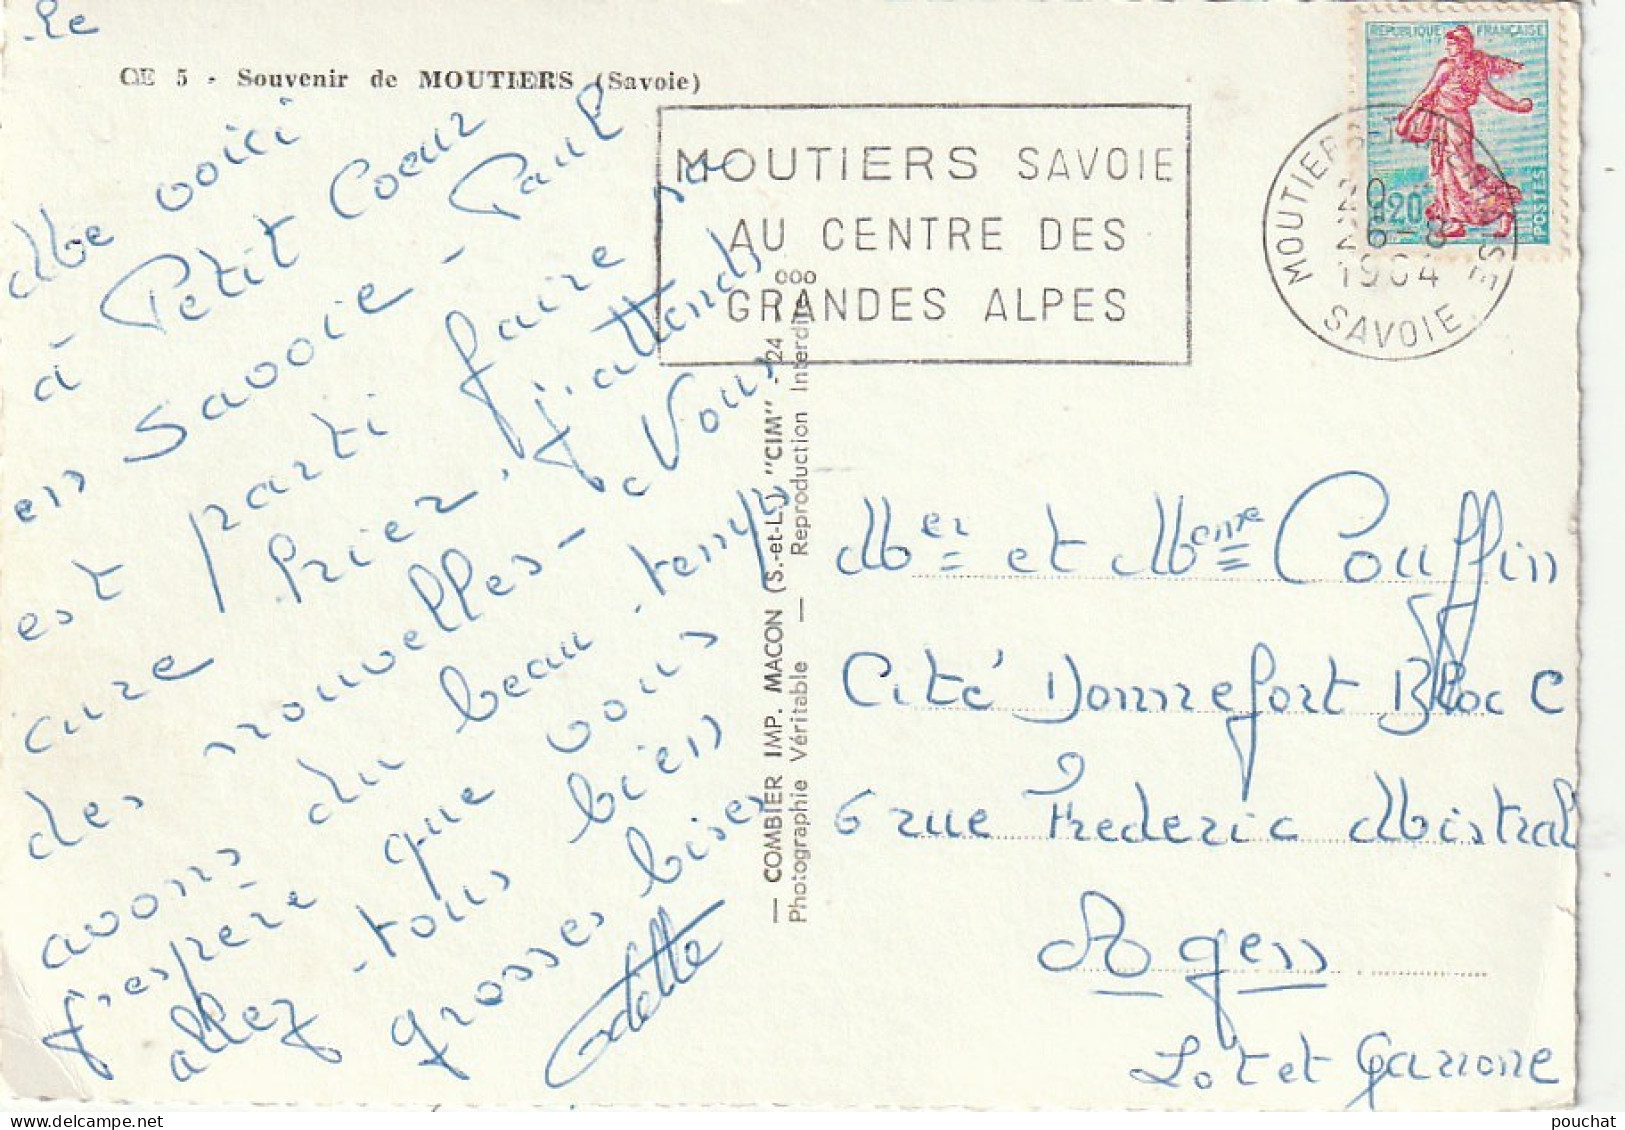 Le
CE 5 - Souvenir de MOUTIERS (Savoie)
Me voici
à Petit Coeur
en Savoie - Paul
est parti faire sa
cure hier. J'attends
des nouvelles - Nous
avons du beau temps
J'espère que vous
allez tous bien
grosses bises
Odette
MOUTIERS SAVOIE
AU CENTRE DES
GRANDES ALPES
— COMBIER IMP. MACON (S.-et-L.) "CIM" - 24
Photographie Véritable — Reproduction Interdite
ooo
REPUBLIQUE FRANÇAISE
0,20
POSTES
MOUTIERS
20
6-8
1964
SAVOIE
Mer et Menxe Couffin
Cité Donnefort Bloc C
6 rue Frederic Mistral
Agen
Lot et Garonne
pouchat